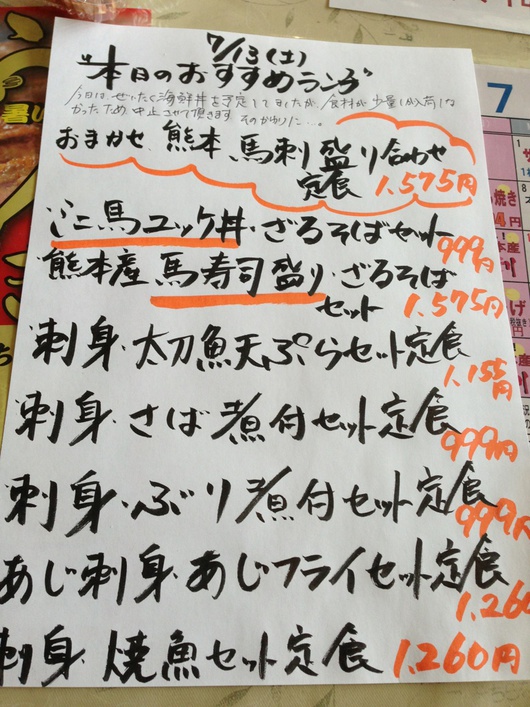 7/13(土)
"本日のおすすめランチ"
今日は、ぜいたく海鮮丼を予定してましたが、食材が少量しか入荷しな
かったため、中止させて頂きます。そのかわりに…。
おまかせ 熊本 馬刺盛り合わせ
定食 1,575円
ミニ馬ユッケ丼・ざるそばセット
999円
熊本産 馬寿司盛り・ざるそば
セット 1,575円
刺身・太刀魚天ぷらセット定食
1,155円
刺身・さば煮付セット定食
999円
刺身・ぶり煮付セット定食
999円
あじ刺身・あじフライセット定食
1,260
刺身・焼魚セット定食 1,260円
7